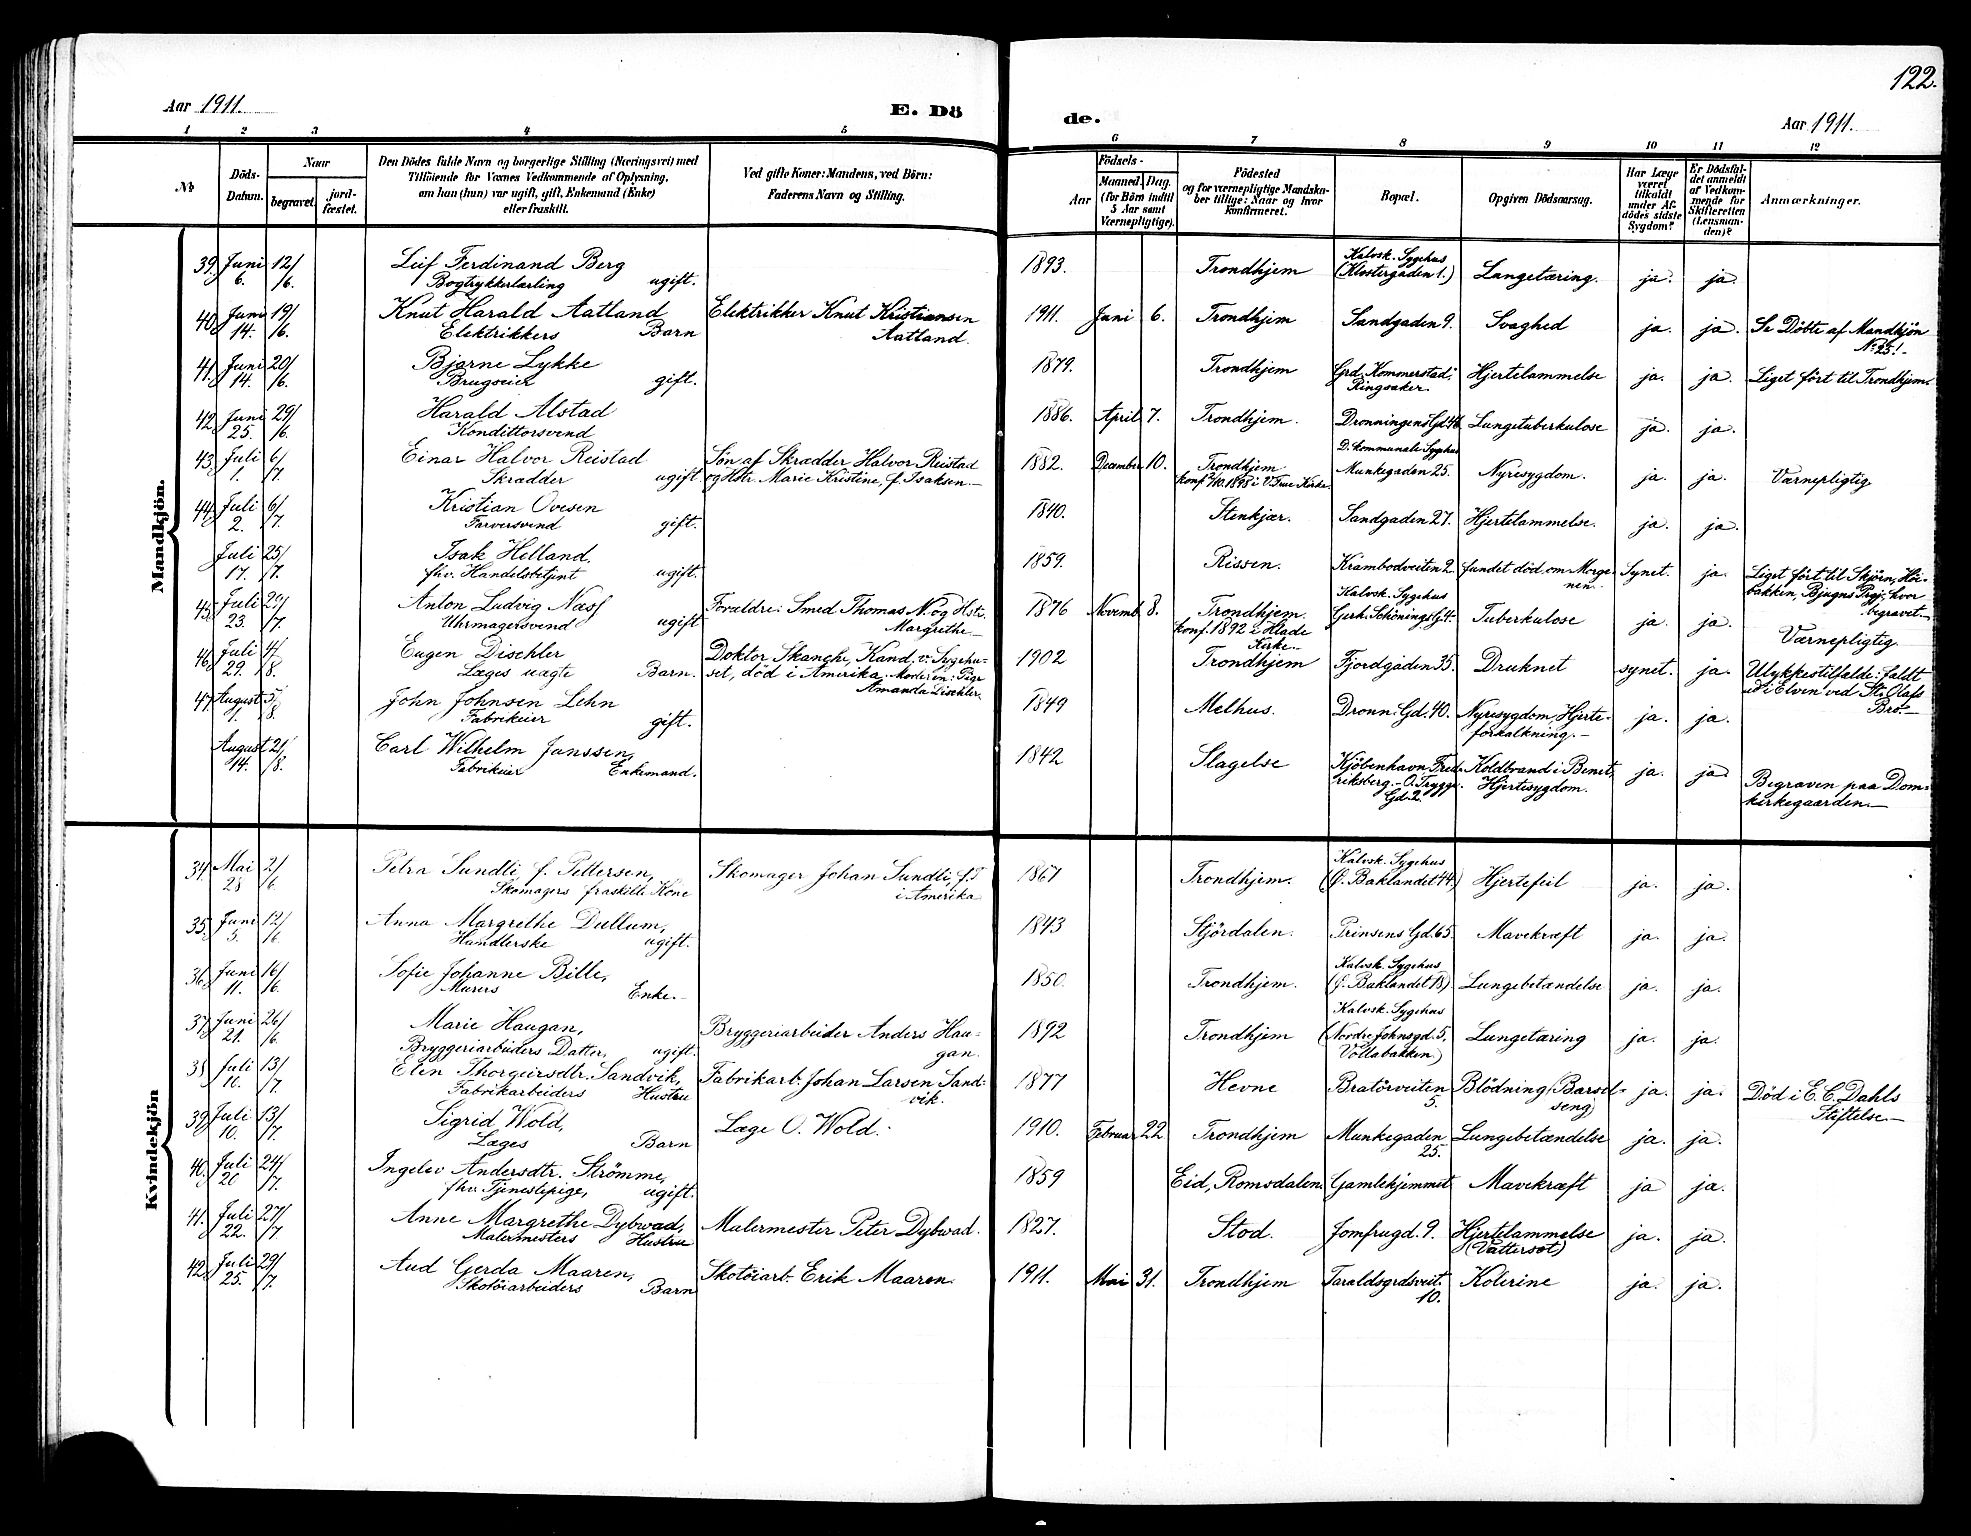 122.
Aar 1911.
E. Dö
de.
Aar 1911.
1 2 3 4 5
6 7 8 9 10 11 12
№
Döds-
Datum.
Naar
begravet.
jord-
fæstet.
Den Dödes fulde Navn og borgerlige Stilling (Næringsvei) med
Tilföiende for Voxnes Vedkommende af Oplysning,
om han (hun) var ugift, gift, Enkemand (Enke)
eller fraskilt.
Ved gifte Koner: Mandens, ved Börn:
Faderens Navn og Stilling.
Födsels-
Aar
Maaned.
Dag.
(for Börn indtil
5 Aar samt
Værnepligtige).
Födested
og for værnepligtige Mandska-
ber tillige: Naar og hvor
konfirmeret.
Bopæl.
Opgiven Dödsaarsag.
Har Læge
været
tilkaldt
under Af-
dödes sidste
Sygdom?
Er Dödsfal-
det anmeldt
af Vedkom-
mende for
Skifteretten
(Lensman-
den)?
Anmærkninger.
Mandkjön.
39. Juni 6. 12/6. Leif Ferdinand Berg 1893. Trondhjem Kalvsk. Sygehus Lungetæring. ja. ja.
Bogtrykkerlærling ugift. (Klostergaden 1.)
40. Juni 14. 19/6. Knut Harald Aatland Elektrikker Knut Kristiansen 1911. Juni 6. Trondhjem Sandgaden 9. Svaghed ja. ja. Se Döbte af Mandkjön
Elektrikkers Barn Aatland. No 25!-
41. Juni 14. 20/6. Bjarne Lykke 1879. Trondhjem Grd. Kommerstad, Hjertelammelse ja. ja. Liget fört til Trondhjem.
Brugseier gift. Ringsaker.
42. Juni 25. 29/6. Harald Alstad 1886. April 7. Trondhjem. Dronningens Gd. 46 Lungetuberkulose ja. ja.
Kondittorsvend
43. Juli 1. 6/7. Einar Halvor Reistad Søn af Skrædder Halvor Reistad 1882. December 10. Trondhjem D. kommunale Sygehus Nyresygdom. ja. ja. Værnepligtig
Skrædder ugift. og Hstr. Marie Kristine, f. Isaksen.- konf. /10.1898 i V. Frue Kirke. Munkegaden 25.
44. Juli 2. 6/7. Kristian Ovesen 1840. Stenkjær. Sandgaden 27. Hjertelammelse. ja. ja.
Farversvend gift.
Juli 17. 25/7. Isak Helland. 1859. Rissen. Krambodveiten 2. fundet död om Morge- Synet. ja. Liget fört til Skjörn, Höi-
fhv. Handelsbetjent ugift. nen. bakken, Bjugns Prgj. hvor
begravet.-
45. Juli 23. 29/7. Anton Ludvig Næss Forældre: Smed Thomas N. og Hstr. 1876 Novemb. 8. Trondhjem. Kalvsk. Sygehus Tuberkulose ja. ja. Værnepligtig
Uhrmagersvend ugift Margrethe.- konf. 1892 i Hlade Gerh. Schönings G. 4.
Kirke.-
46. Juli 29. 4/8. Eugen Dischler Doktor Skanche, Kand. v. Sygehu- 1902 Trondhjem Fjordgaden 35. Druknet synet. ja. Ulykkestilfælde: faldt
Læges uægte Barn. set, död i Amerika. Moderen: Pige ud i Elven ved St. Olafs
Amanda Dischler. Bro.-
47. August 1. 5/8. John Johnsen Lehn 1849 Melhus. Dronn. Gd. 40. Nyresygdom, Hjerte- ja. ja.
Fabrikeier gift. forkalkning.-
August 14. 21/8. Carl Wilhelm Janssen, 1842 Slagelse Kjöbenhavn Fred- Koldbrand i Benet, ja. ja Begraven paa Dom-
Fabrikeier Enkemand. riksberg.- O. Trygge. Hjertesygdom. kirkegaarden.-
Gd. 2.
Kvindekjön
34. Mai 28 2/6. Petra Sundli, f. Pettersen, Skomager Johan Sundli, f.T. 1867 Trondhjem. Kalvsk. Sygehus Hjertefeil ja. ja.
Skomagers fraskilte Kone i Amerika (Ö. Baklandet 44.)
35. Juni 5. 12/6. Anna Margrethe Dullum, 1843 Stjördalen. Prinsens Gd. 65. Mavekræft ja. ja.
Handlerske ugift.
36. Juni 11. 16/6. Sofie Johanne Bille, 1850. Trondhjem. Kalvsk. Sygehus Lungebetændelse ja. ja.
Murers Enke.- (Ö. Baklandet 18)
37. Juni 21. 26/6. Marie Haugan, Bryggeriarbeider Anders Hau- 1892 Trondhjem Kalvsk. Sygehus Lungetæring ja. ja.
Bryggeriarbeiders Datter, ugift. gan. (Nordre Johnsgd. 5,
Vollabakken)
38 Juli 10. 13/7. Elen Thorgeirsdtr. Sandvik, Fabrikarb. Johan Larsen Sand- 1877 Hevne Bratörveiten Blödning (Barsel- ja. ja. Död i E. C. Dahls
Fabrikarbeiders Hustru vik. 5. seng) Stiftelse.-
39. Juli 10. 13/7. Sigrid Wold, Læge O. Wold. 1910. Februar 22 Trondhjem Munkegaden Lungebetændelse ja. ja.
Læges Barn 25.
40. Juli 20 24/7. Ingelev Andersdtr. Strömme, 1859 Eid, Romsdalen. Gamlehjemmet Mavekræft ja ja.
fhv. Tjenestepige, ugift.
41. Juli 22. 27/7. Anne Margrethe Dybwad, Malermester Peter Dybwad. 1827. Stod. Jomfrugd. 9. Hjertelammelse ja. ja.
Malermesters Hustru (Vattersot)
42. Juli 25. 29/7. Aud Gerda Maaren, Skotöiarb. Erik Maaren. 1911. Mai 31. Trondhjem Taraldsgrdsveit. Kolerine ja. ja.
Skotöiarbeiders Barn 10.